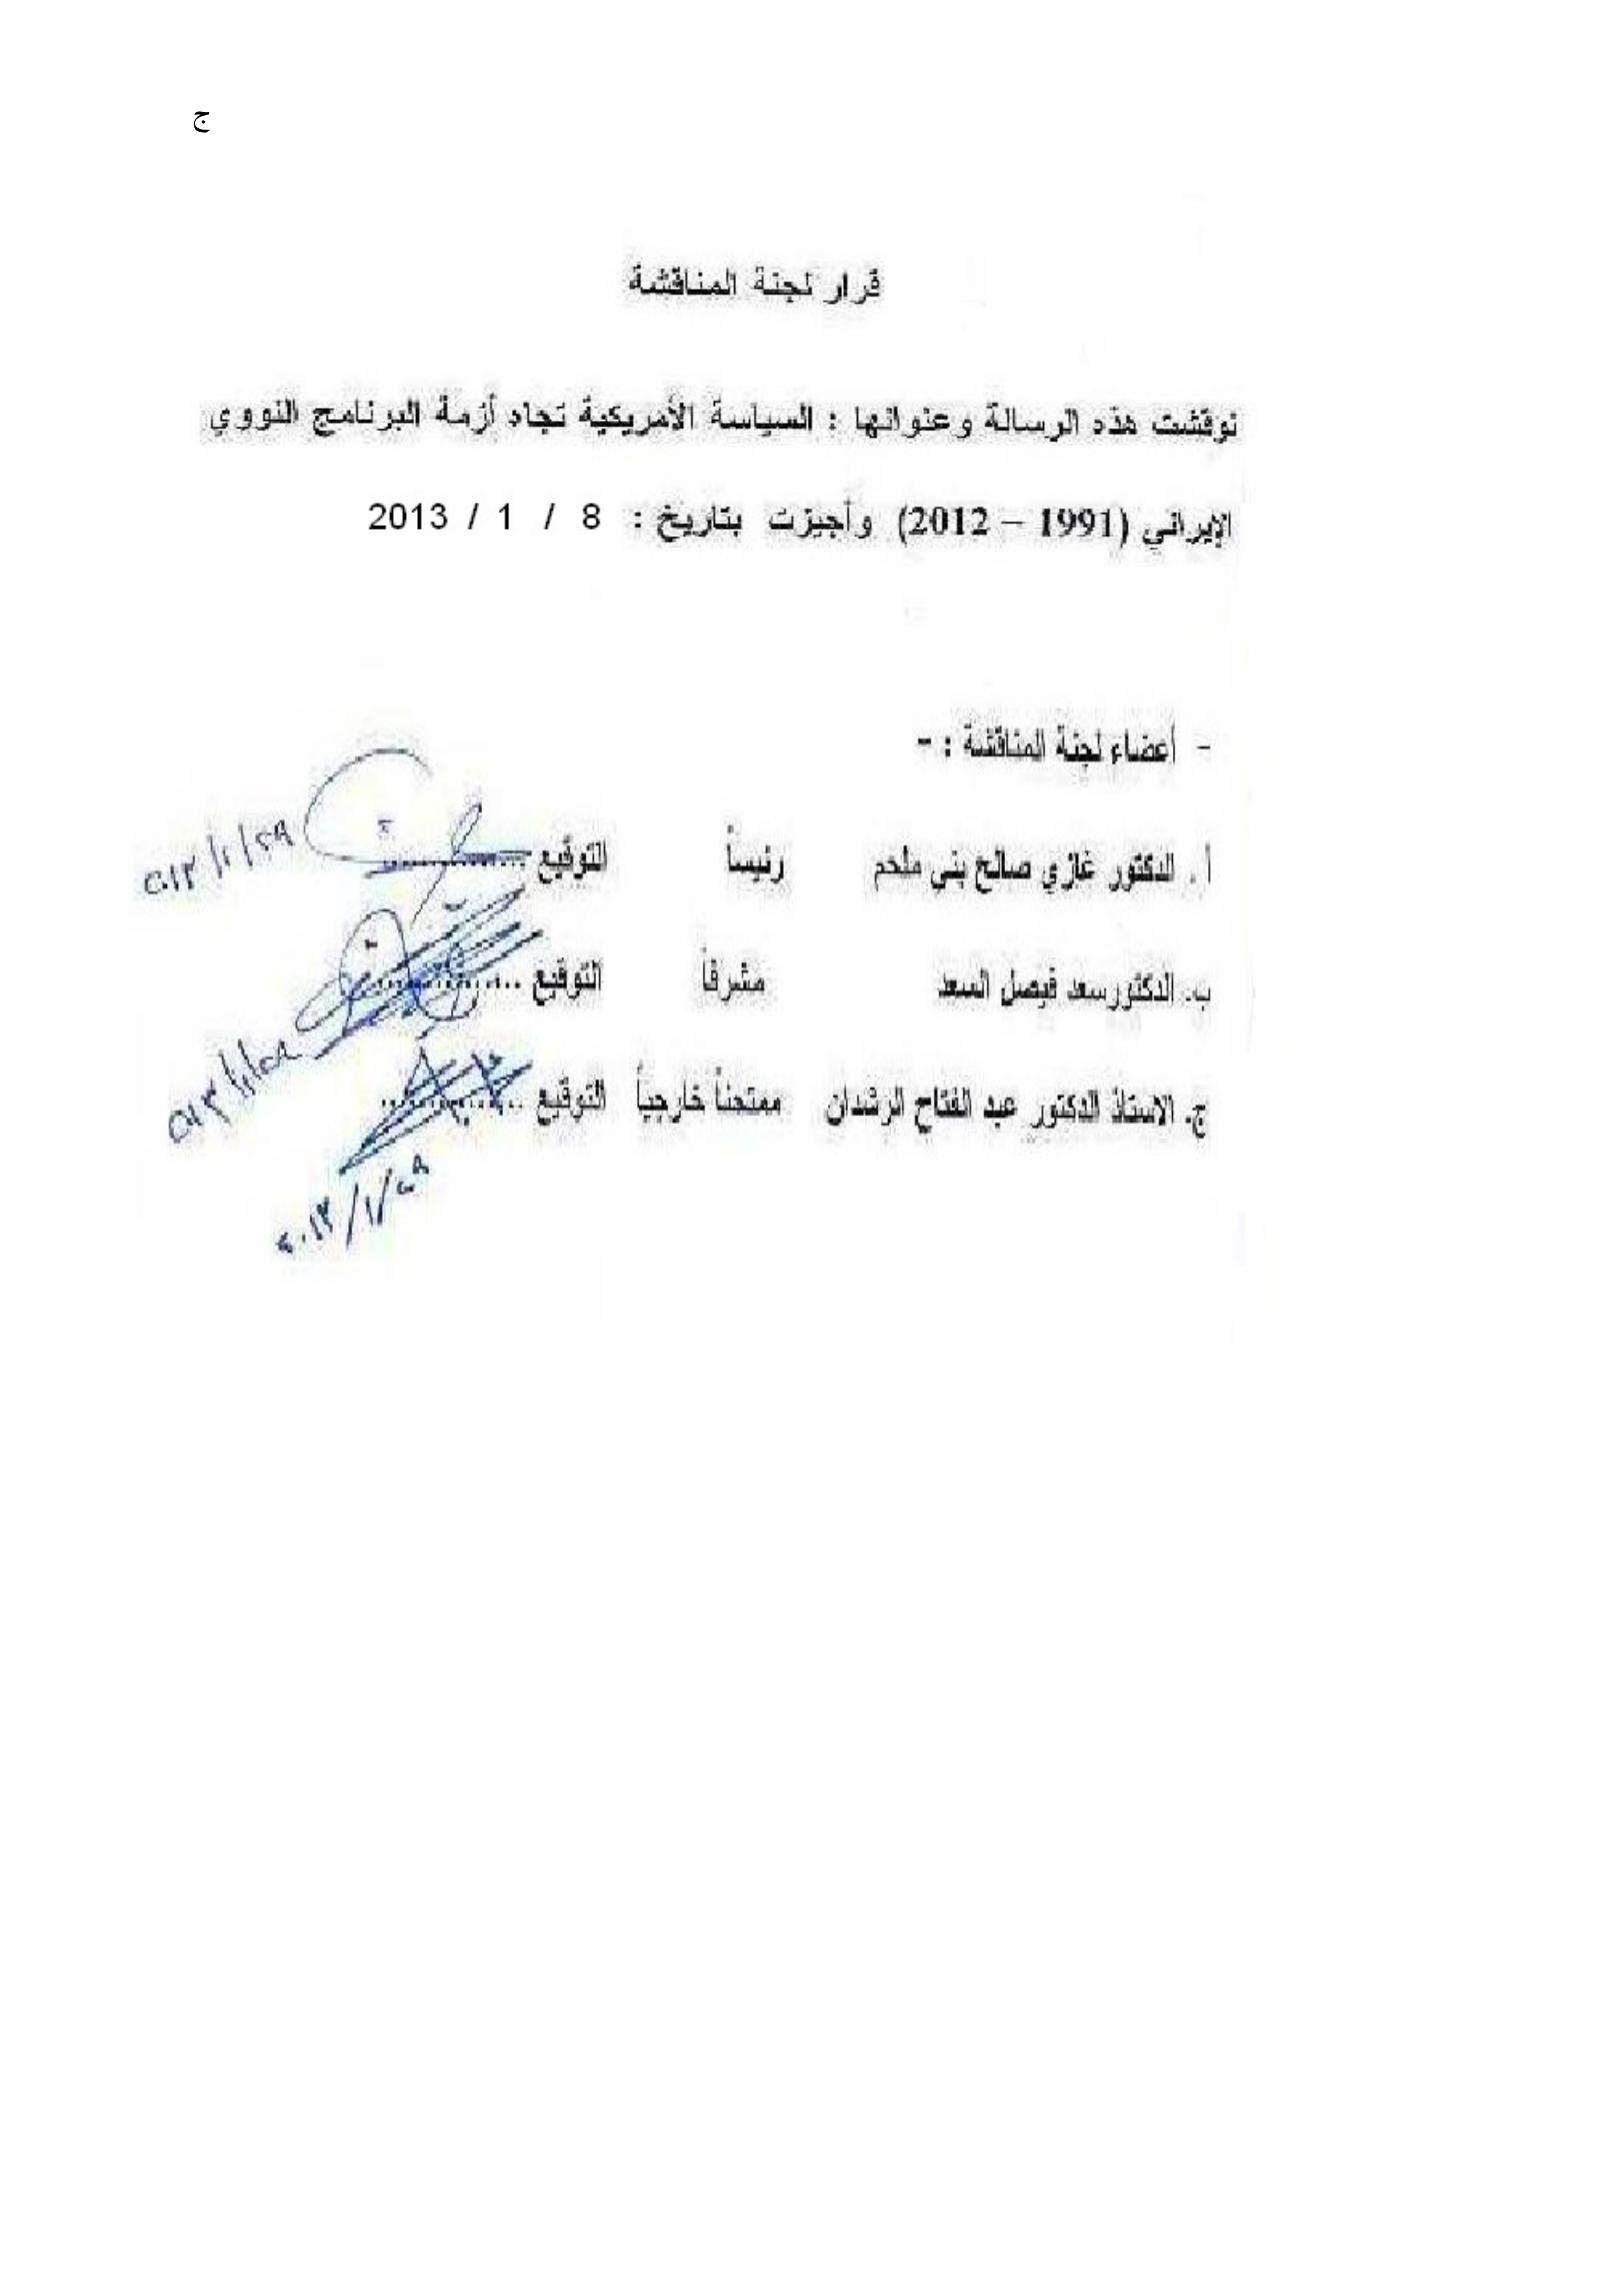 ج
قرار لجنة المناقشة
نوقشت هذه الرسالة وعنوانها : السياسة الأمريكية تجاه أزمة البرنامج النووي
الإيراني (1991 – 2012) وأجيزت بتاريخ : 8 / 1 / 2013
- أعضاء لجنة المناقشة : -
أ . الدكتور غازي صالح بني ملحم رئيساً التوقيع ..............
٢٠١٣/١/٢٩
ب. الدكتورسعد فيصل السعد مشرفاً التوقيع ..............
٢٠١٣/١/٢٩
ج. الاستاذ الدكتور عبد الفتاح الرشدان ممتحناً خارجياً التوقيع ..............
٢٠١٣/١/٢٩